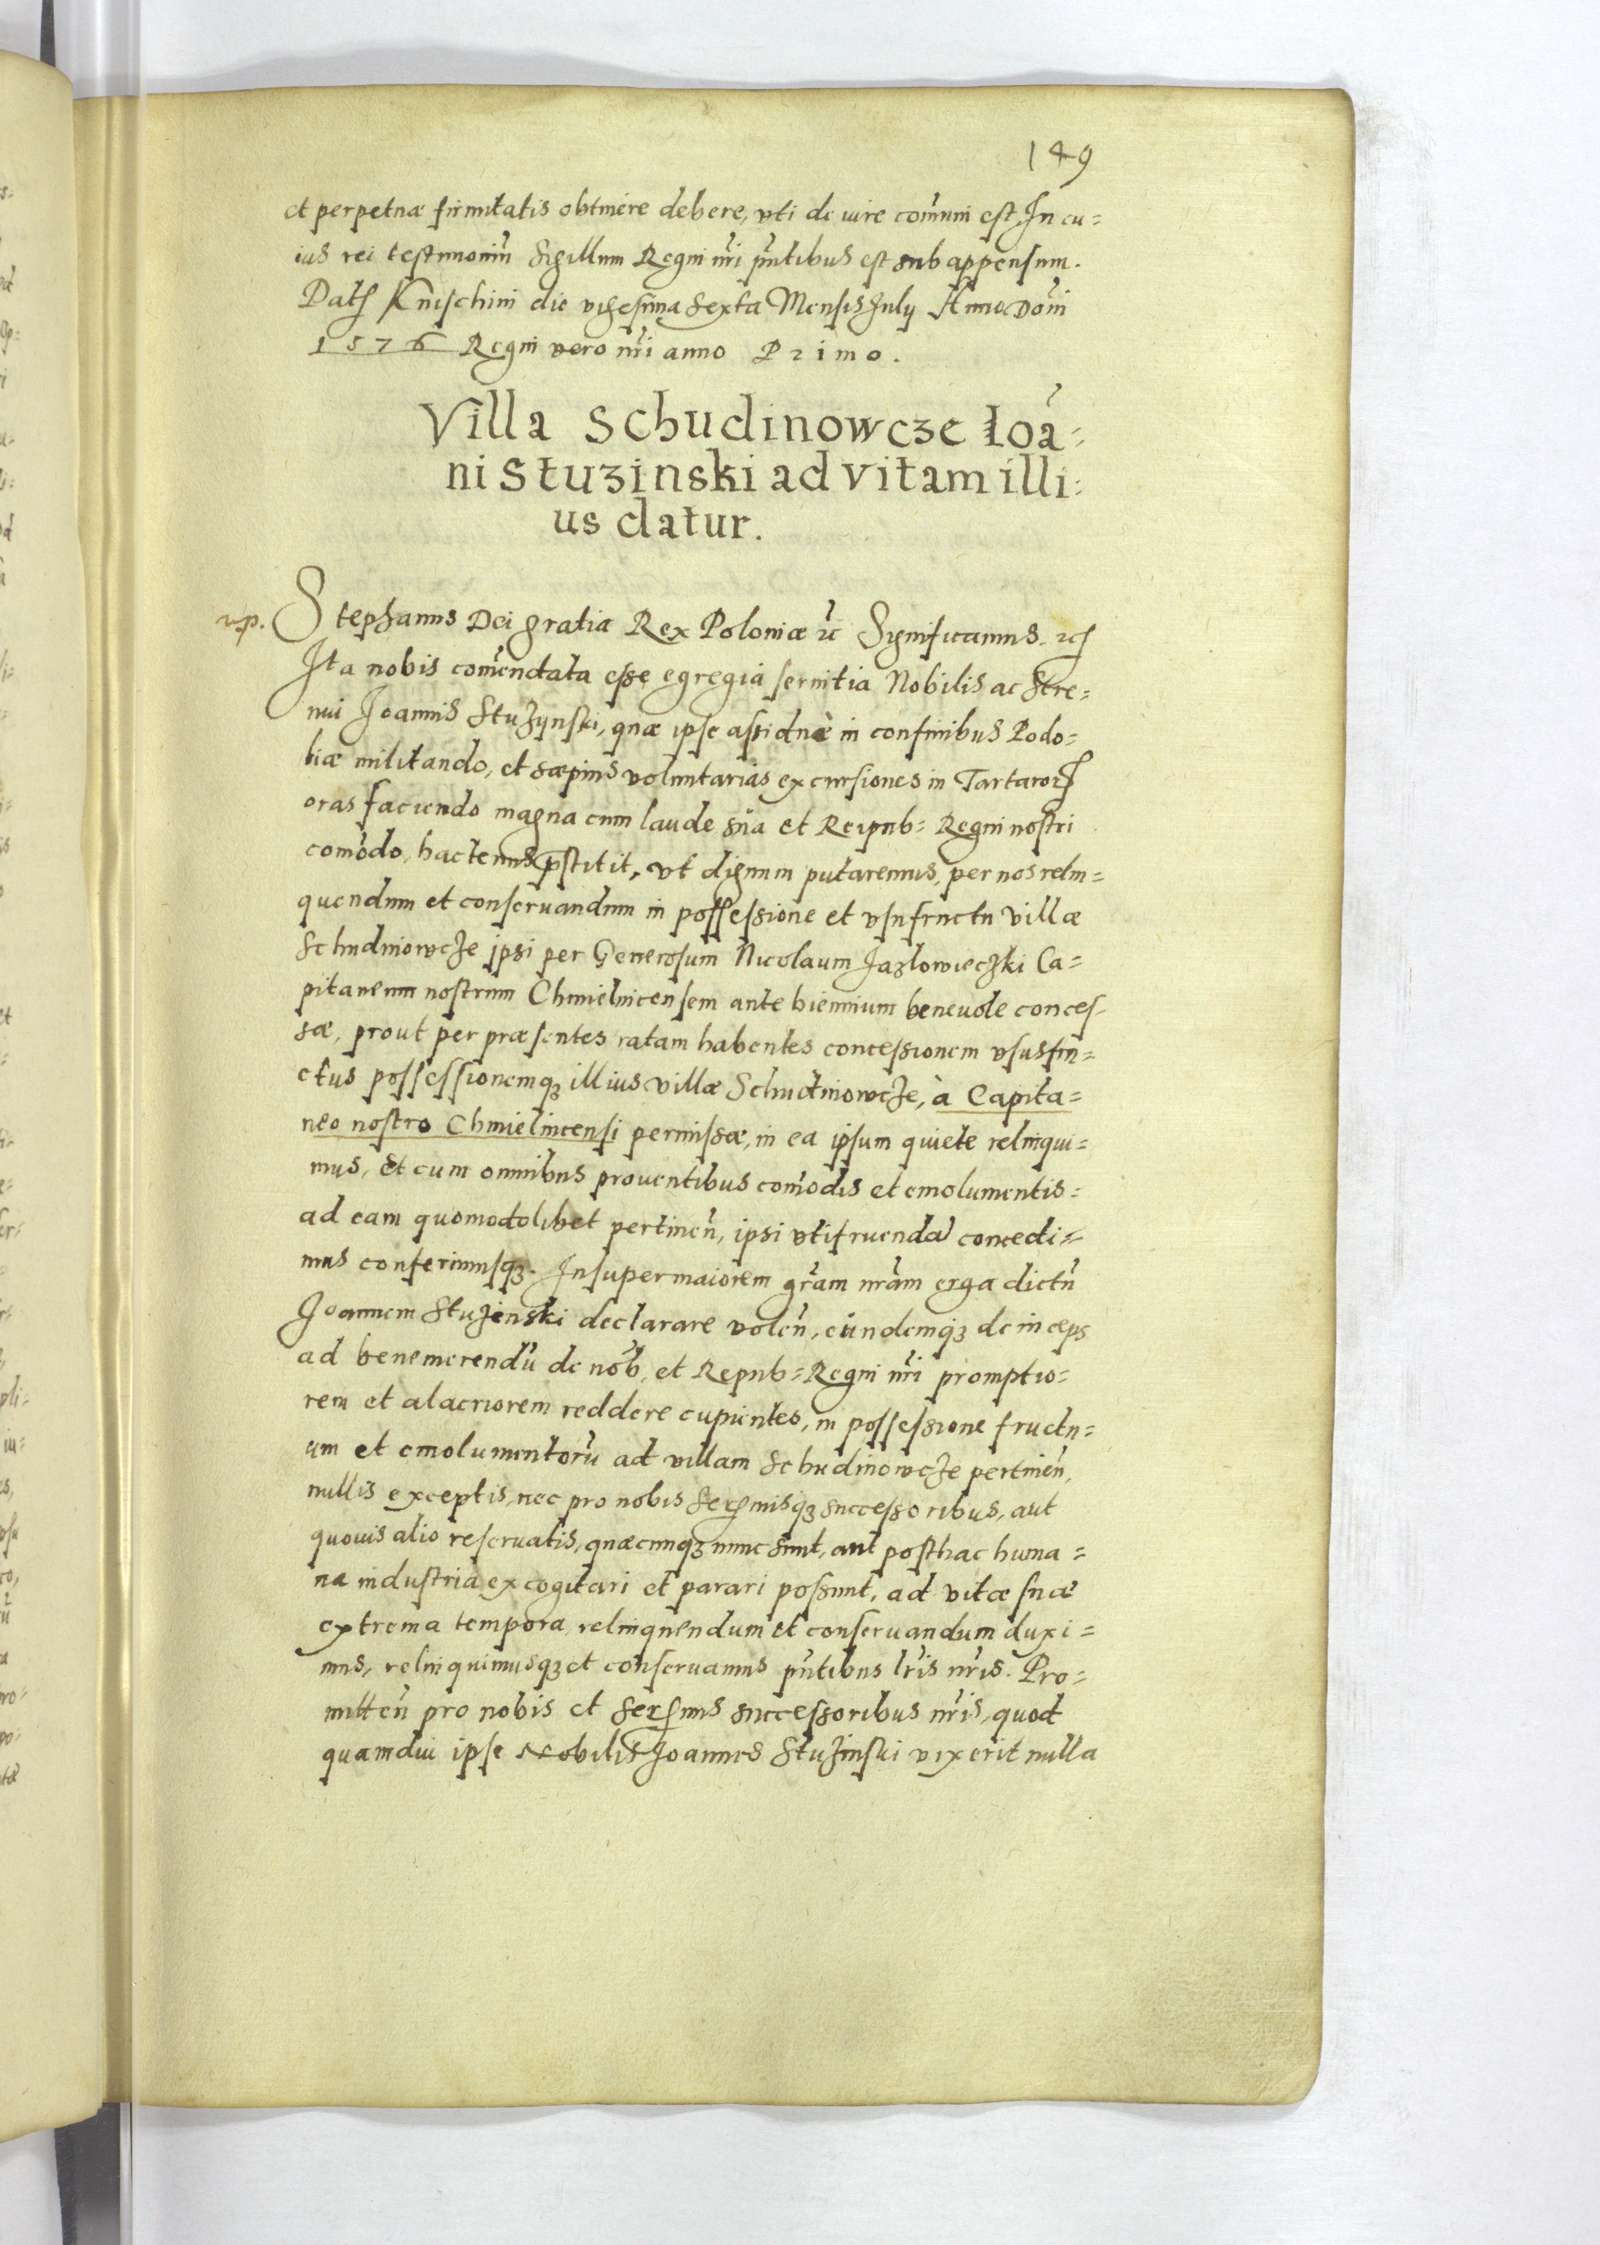 149
et perpetuæ firmitatis obtinere debere, uti de iure com̃uni est, In cu=
ius rei testimoniũ Sigillum Regni nr̃i pñtibus est sub appensum.
Dat: Knischini die vigesima sexta Mensis July Anno Dom̃i
1576 Regni vero nr̃i anno Primo.
Villa Schudinowcze Ioã=
ni Stuzinski ad vitam illi=
us datur.
up. Stephanus Dei gratia Rex Poloniæ ꝛc̃ Significamus. ꝛc
Ita nobis com̃endata esse egregia seruitia Nobilis ac Stre=
nui Joannis Stuzynski, quæ ipse assiduè in confinibus Podo=
liæ militando, et sæpius voluntarias excursiones in Tartaroꝝ
oras faciendo magna cum laude sũa et Reipub= Regni nostri
com̃odo, hactenus p̃stitit, ut dignum putaremus, per nos relin=
quendum et conseruandum in possessione et usufructu villæ
Schudinowcze ipsi per Generosum Nicolaum Jazlowieczki Ca=
pitaneum nostrum Chmielnicensem ante biennium beneuole conces-
sæ, prout per præsentes ratam habentes concessionem ususfru=
ctus possessionemqꝫ illius villæ Schudinowcze, à Capita=
neo nostro Chmielnicensi permissæ, in ea ipsum quiete relinqui=
mus, Et cum omnibus prouentibus com̃odis et emolumentis=
ad eam quomodolibet pertineñ, ipsi utifruenda concedi=
mus conferimusqꝫ. Insuper maiorem grãm nrãm erga dictũ
Joannem Stuzenski declarare voleñ, eundemqꝫ deinceps
ad benemerendũ de nob̃, et Repub= Regni nr̃i promptio=
rem et alacriorem reddere cupientes, in possessione fructu=
um et emolumentorũ ad villam Schudinowcze pertineñ,
nullis exceptis, nec pro nobis Serẽnisqꝫ successoribus, aut
quouis alio reseruatis, quæcunqꝫ nunc sunt, aut posthac huma=
na industria excogitari et parari possunt, ad vitæ suæ
extrema tempora relinquendum et conseruandum duxi=
mus, relinquimusqꝫ et conseruamus pñtibus lr̃is nr̃is. Pro=
mitteñ pro nobis et Serẽnis successoribus nr̃is, quod
quamdiu ipse Nobilis Joannes Stuzinski vixerit nulla